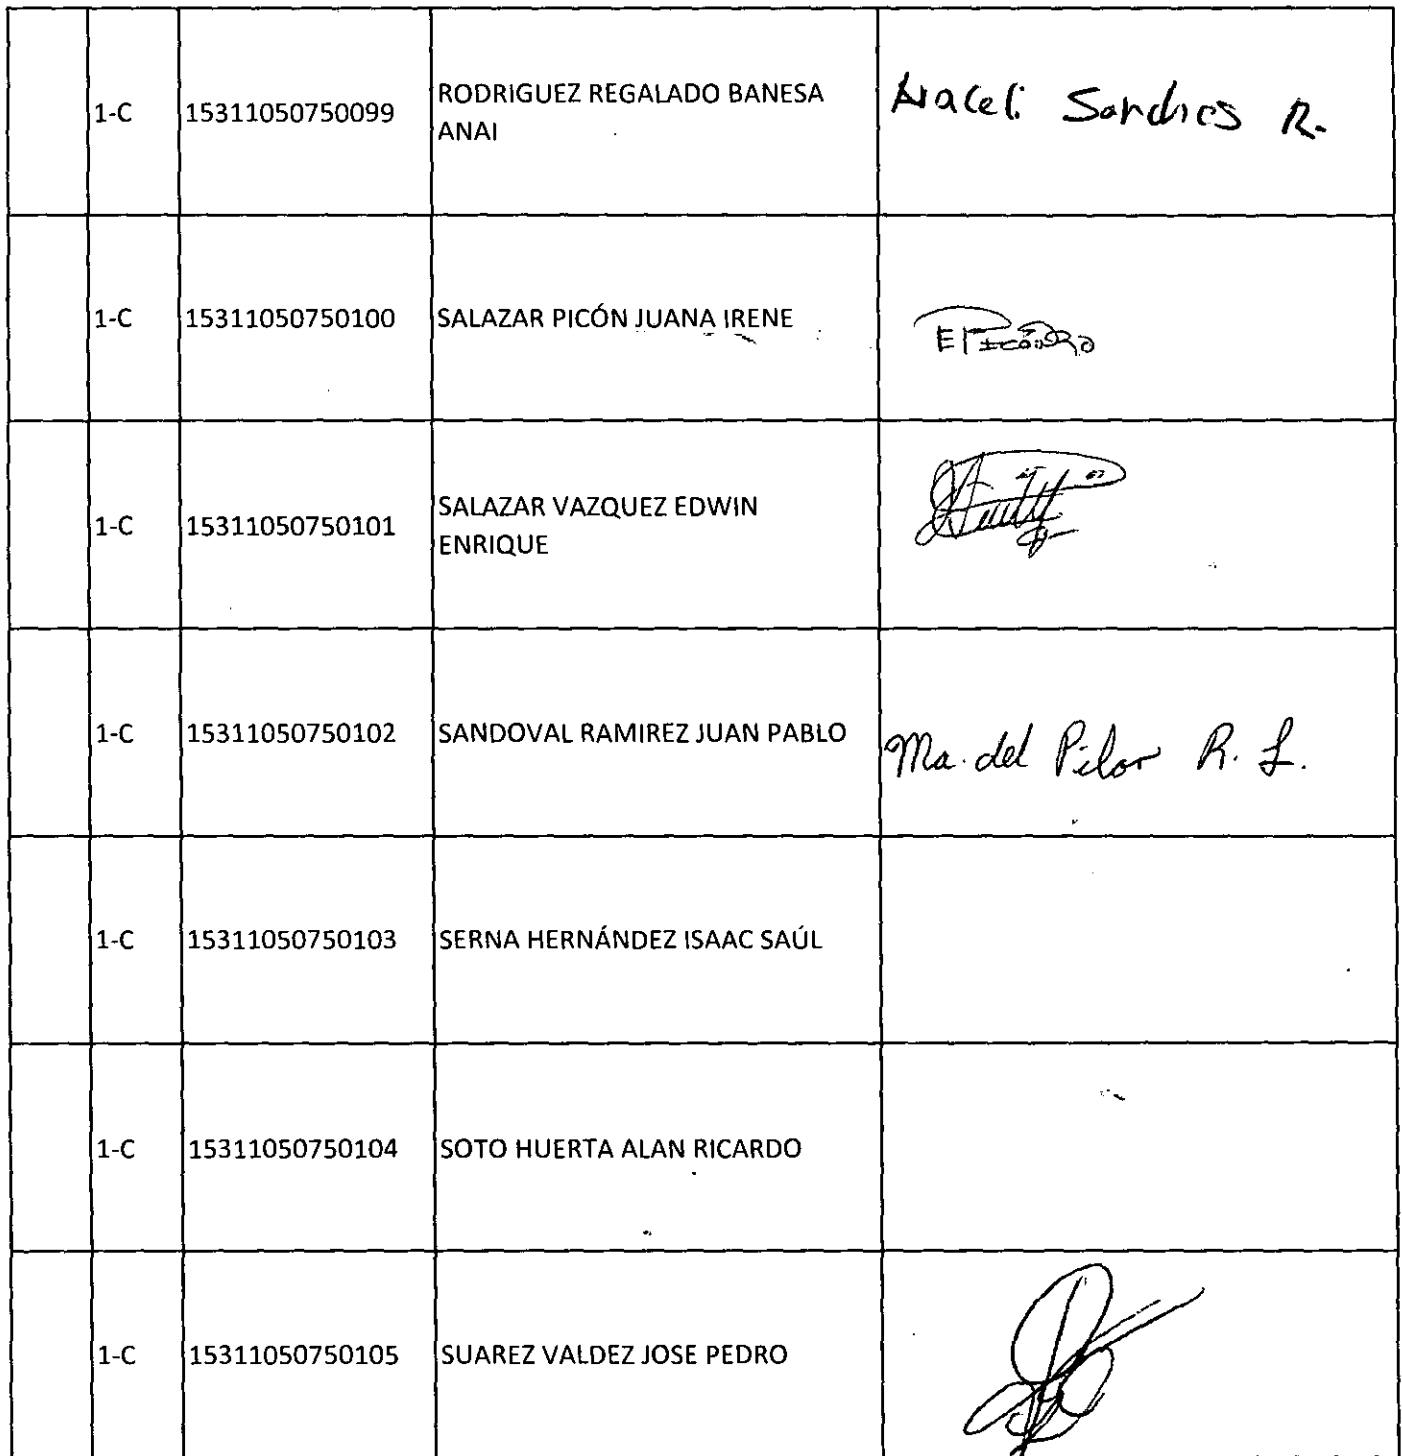 1-C 15311050750099 RODRIGUEZ REGALADO BANESA
ANAI
Araceli Sanches R.
1-C 15311050750100 SALAZAR PICÓN JUANA IRENE
1-C 15311050750101 SALAZAR VAZQUEZ EDWIN
ENRIQUE
1-C 15311050750102 SANDOVAL RAMIREZ JUAN PABLO Ma. del Pilar R. L.
1-C 15311050750103 SERNA HERNÁNDEZ ISAAC SAÚL
1-C 15311050750104 SOTO HUERTA ALAN RICARDO
1-C 15311050750105 SUAREZ VALDEZ JOSE PEDRO